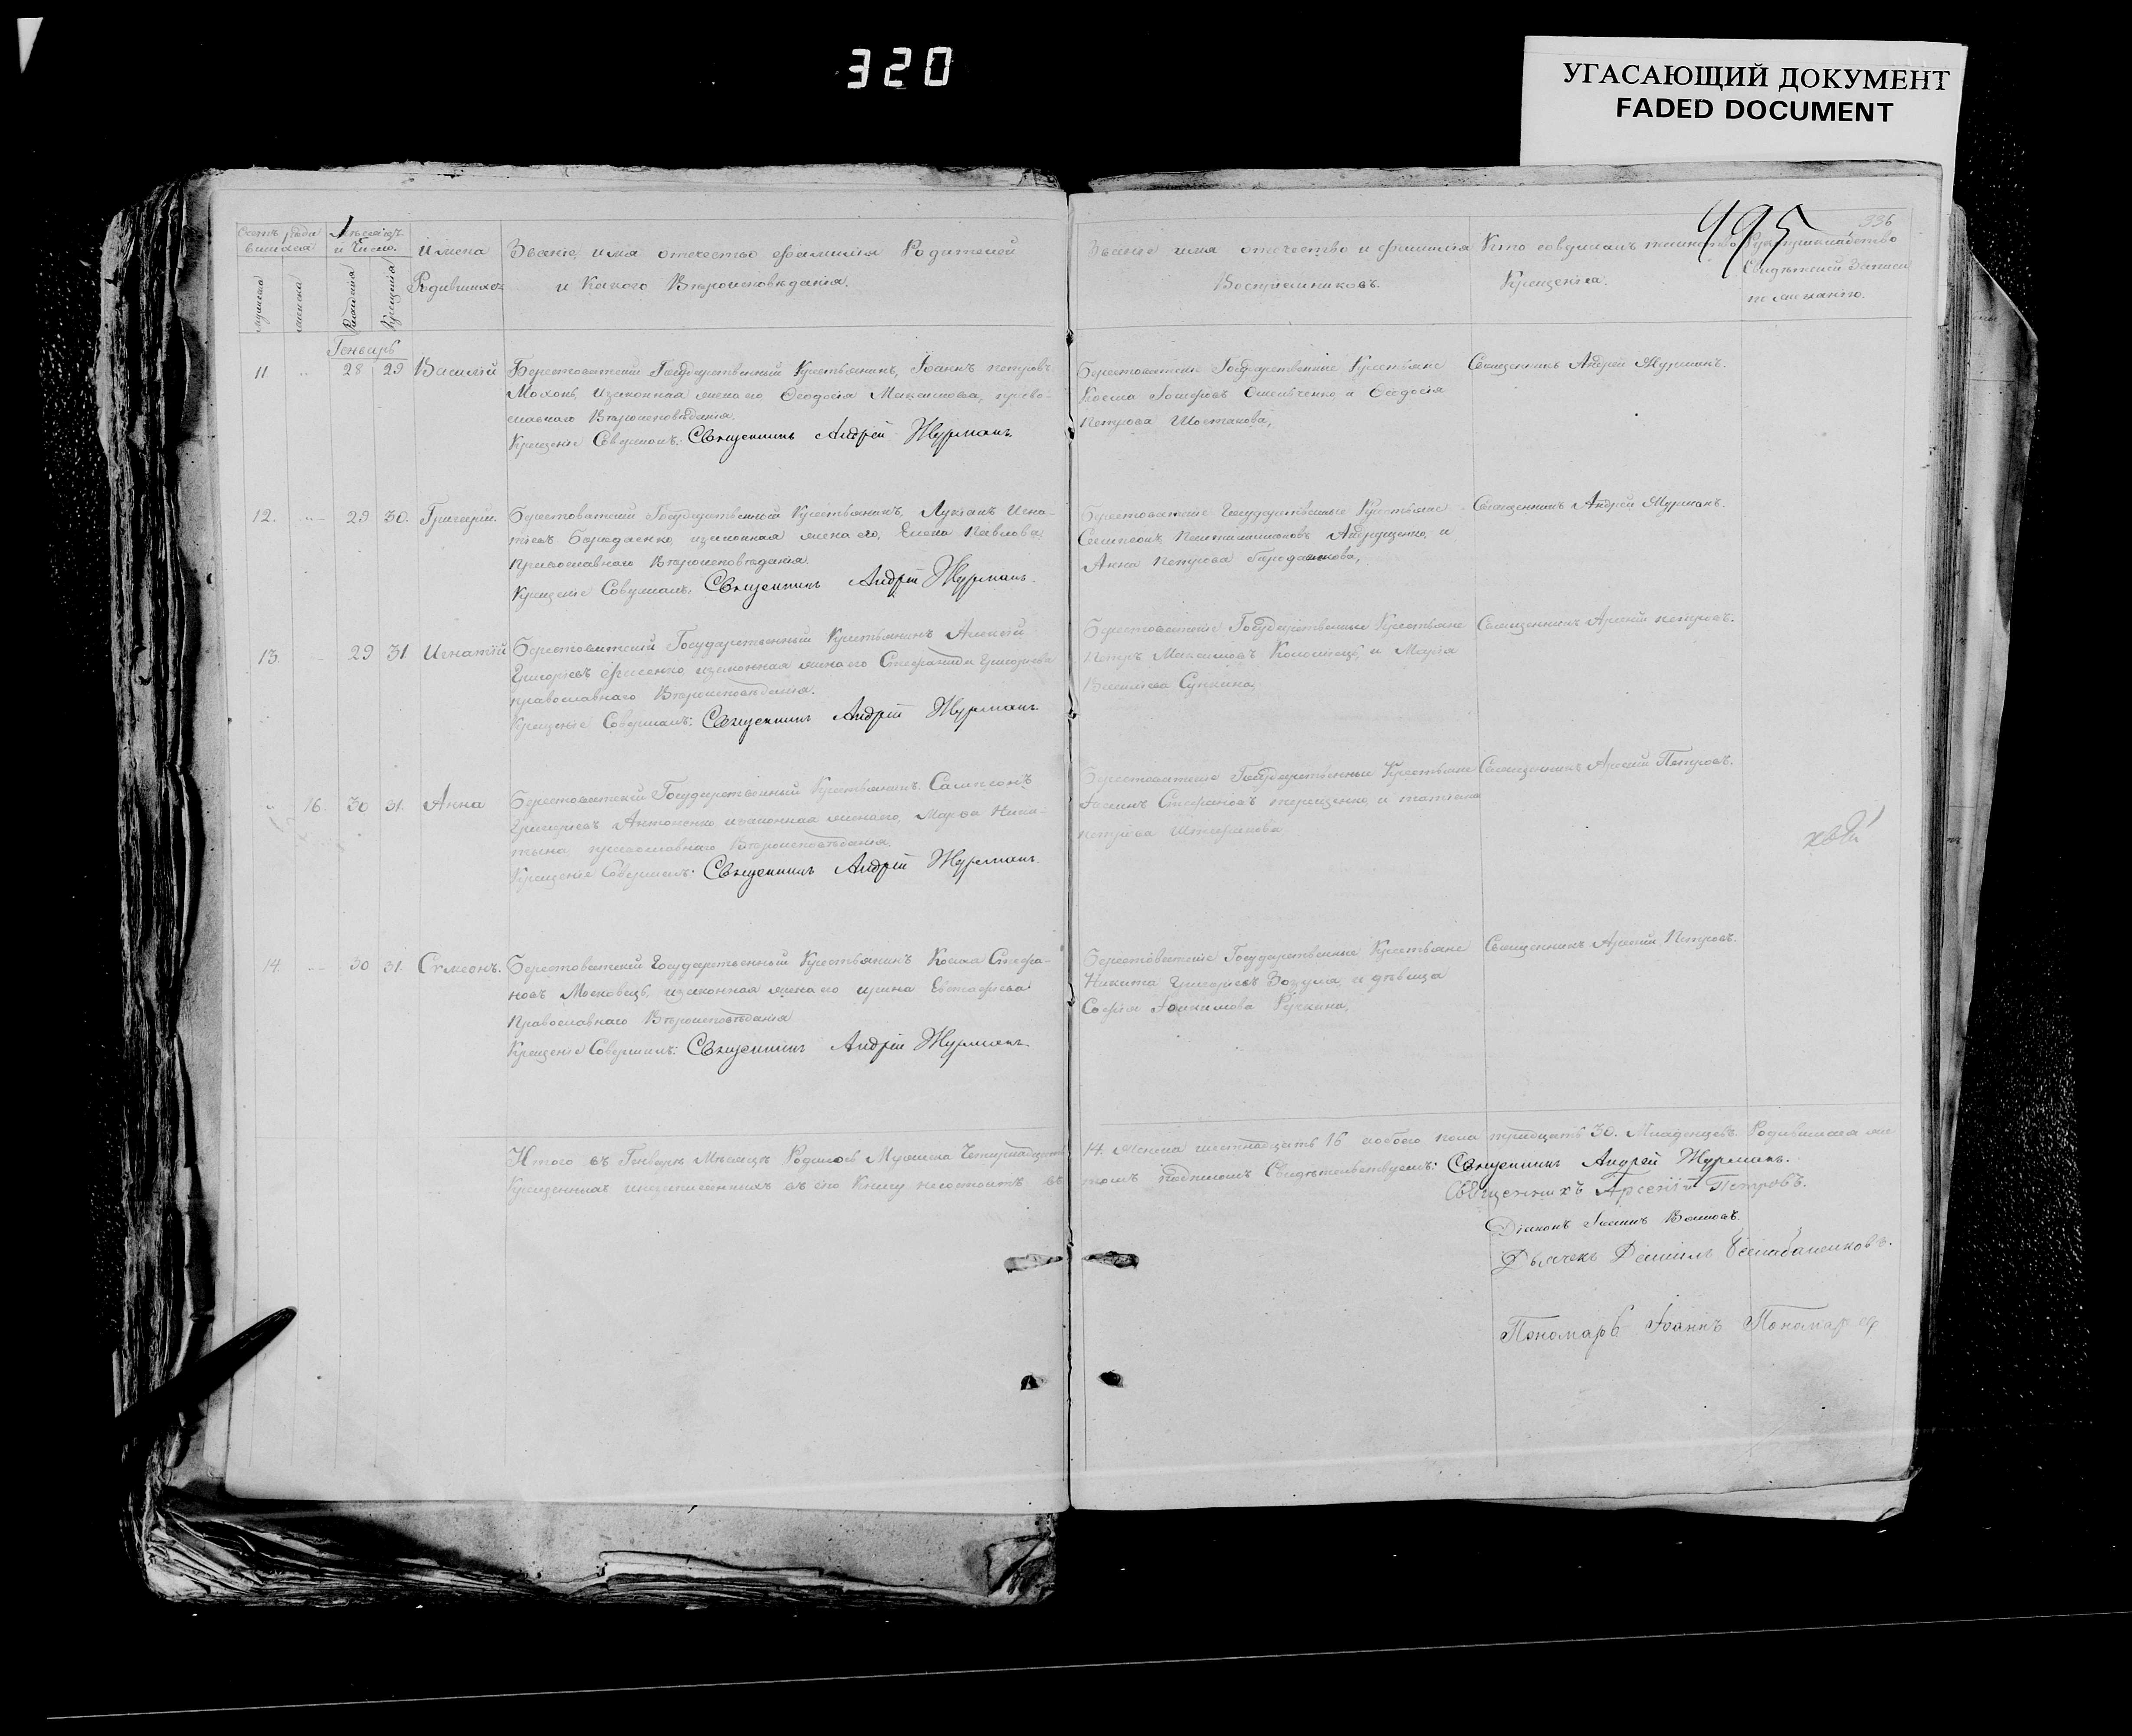 320
УГАСАЮЩИЙ ДОКУМЕНТ
FADED DOCUMENT
495
336
Счетъ родившихся
Мѣсяцъ и Число.
мужеска
женска
Рожденія
Крещенія
Имена Родившихся
Званіе, имя отечество фамилія Родителей
и Какого Вѣроисповѣданія.
Званіе имя отечество и фамилія
Воспріемниковъ.
Кто совершалъ таинство
Крещенія.
Рукоприкладство
Свидѣтелей Записи
по желанію.
Генварь
11 28 29 Василій
Берестоватскій Государственный Крестьянинъ, Іоаннъ петровъ
Махонь, изаконная жена его Ѳеодосія Максимова, право-
славнаго Вѣроисповѣданія.
Крещеніе Совершалъ: Священникъ Андрей Журманъ.
Берестоватскіе Государственные Крестьяне
Косма Іосифовъ Омельченко и Ѳеодосія
Петрова Шостакова,
Священникъ Андрей Журманъ.
12. 29 30. Григорій.
Берестоватскій Государственный Крестьянинъ, Лукіанъ Игна-
тіевъ Бородаенко, изаконная жена его, Елена Павлова,
Православнаго Вѣроисповѣданія.
Крещеніе Совершалъ: Священникъ Андрей Журманъ.
Берестоватскіе Государственные Крестьяне
Сампсонъ Андрущенко, и
Анна Петрова Бородаенкова,
Священникъ Андрей Журманъ.
13. 29 31 Игнатій
Берестоватскій Государственный Крестьянинъ Алексѣй
Григорьевъ Фисенко изаконная жена его Стефанида Григорьева
православнаго Вѣроисповѣданія.
Крещеніе Совершалъ: Священникъ Андрей Журманъ
Берестоватскіе Государственные Крестьяне
Петръ Максимовъ Коломіецъ, и Марія
Василіева Сункина,
Священникъ Арсеній петровъ.
16. 30 31. Анна
Берестоватскій Государственный Крестьянинъ Сампсонъ
Григорьевъ Антоненко изаконная жена его, Марѳа Ники-
тина, православнаго Вѣроисповѣданія.
Крещеніе Совершалъ: Священникъ Андрей Журманъ.
Берестоватскіе Государственные Крестьяне
Іоаннъ Стефановъ терещенко, и татіана
петрова Штефанова
Священникъ Арсеній Петровъ.
14. 30 31. Сѵмеонъ.
Берестоватскій Государственный Крестьянинъ Косма Стефа-
новъ Московецъ, изаконная жена его ирина Евстафіева
Православнаго Вѣроисповѣданія
Крещеніе Совершалъ: Священникъ Андрей Журманъ
Берестоватскіе Государственные Крестьяне
Никита Григорьевъ Зозуля, и дѣвица
Софія Іоакимова Ручкина,
Священникъ Арсеній Петровъ.
Итого въ Генварѣ Мѣсяцѣ Родилось Мужеска Четырнадцать 14. Женска шестнадцать 16 аобоего пола тридцать 30. Младенцевъ. Родившихся
Крещенныхъ инезаписанныхъ въ сію Книгу несостоитъ въ томъ подписомъ Свидѣтельствуемъ: Священникъ Андрей Журманъ.
Священникъ Арсеній Петровъ.
Діаконъ Іоаннъ
Дьячекъ Даніилъ
Пономарь Іоаннъ Пономарев